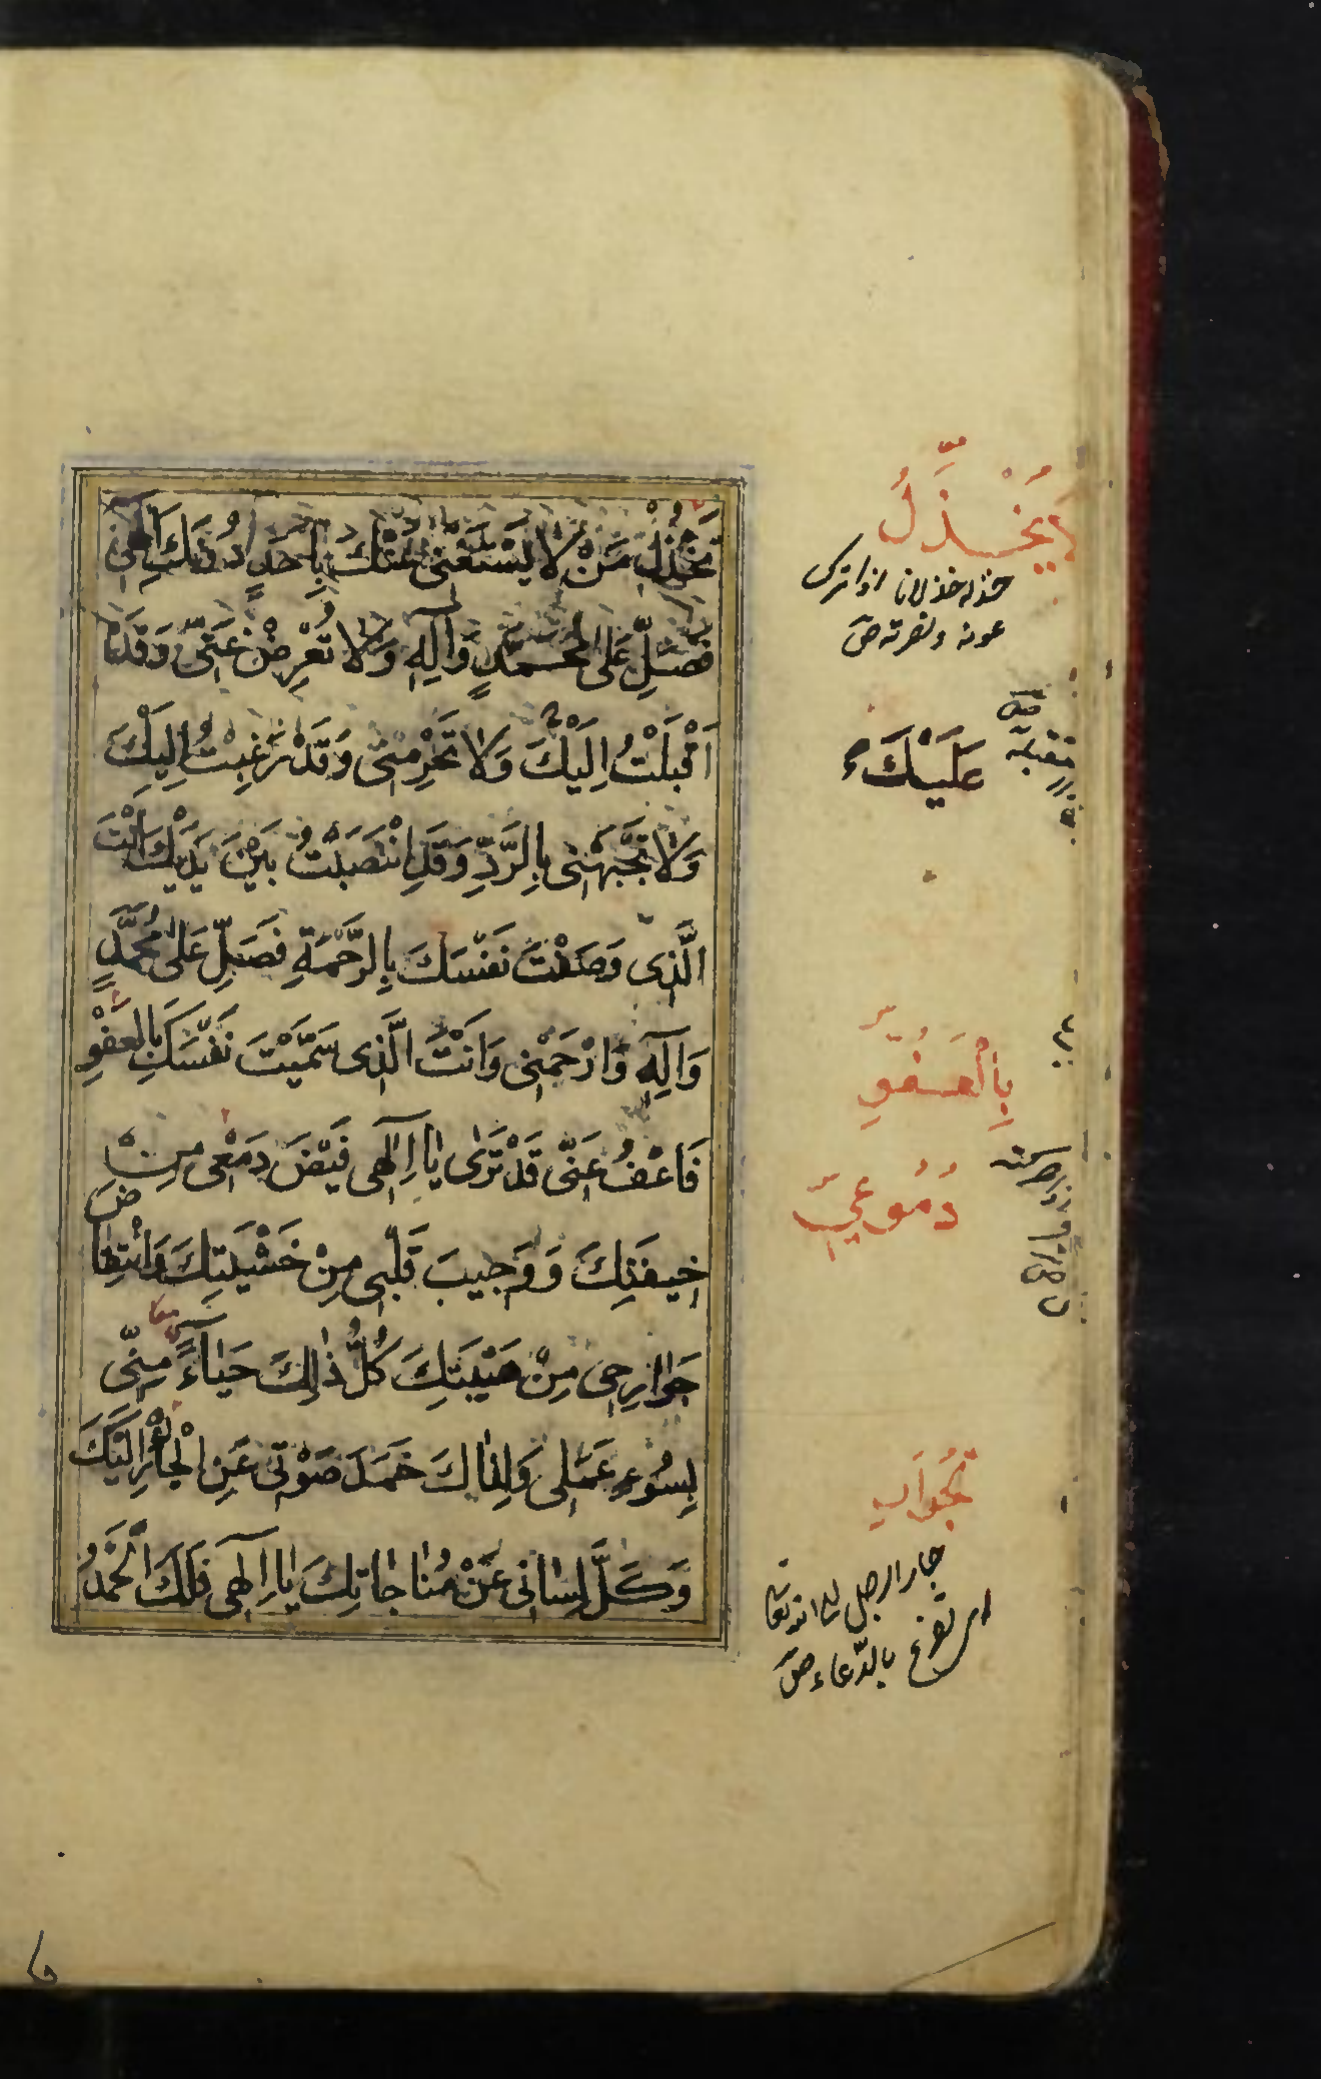 تَخْذُلْ مَنْ لَا يَسْتَغْنِي عَنْكَ بِأَحَدٍ دُونَكَ اِلٰهِي
فَصَلِّ عَلٰى مُحَمَّدٍ وَآلِهِ وَلَا تُعْرِضْ عَنِّي وَقَدْ
اَقْبَلْتُ اِلَيْكَ وَلَا تَحْرِمْنِي وَقَدْ رَغِبْتُ اِلَيْكَ
وَلَا تَجْبَهْنِي بِالرَّدِّ وَقَدِ انْتَصَبْتُ بَيْنَ يَدَيْكَ اَنْتَ
الَّذِي وَصَفْتَ نَفْسَكَ بِالرَّحْمَةِ فَصَلِّ عَلٰى مُحَمَّدٍ
وَآلِهِ وَارْحَمْنِي وَاَنْتَ الَّذِي سَمَّيْتَ نَفْسَكَ بِالْعَفْوِ
فَاعْفُ عَنِّي قَدْ تَرٰى يٰا اِلٰهِي فَيْضَ دَمْعِي مِنْ
خِيفَتِكَ وَوَجِيبَ قَلْبِي مِنْ خَشْيَتِكَ وَانْتِقٰاضَ
جَوٰارِحِي مِنْ هَيْبَتِكَ كُلُّ ذٰلِكَ حَيٰاءً مِنِّي
بِسُوءِ عَمَلِي وَلِذٰاكَ خَمَدَ صَوْتِي عَنِ الْجَأْرِ اِلَيْكَ
وَكَلَّ لِسٰانِي عَنْ مُنٰاجٰاتِكَ يٰا اِلٰهِي فَلَكَ الْحَمْدُ
يَخْذُلُ
خذله خذلانا اذا ترك
عونه ونصرته ص
عَلَيْكَ
بِالْعَفْوِ
دُمُوعِي
جأر الرجل الى الله تعالى
اى تضرع بالدّعاء ص